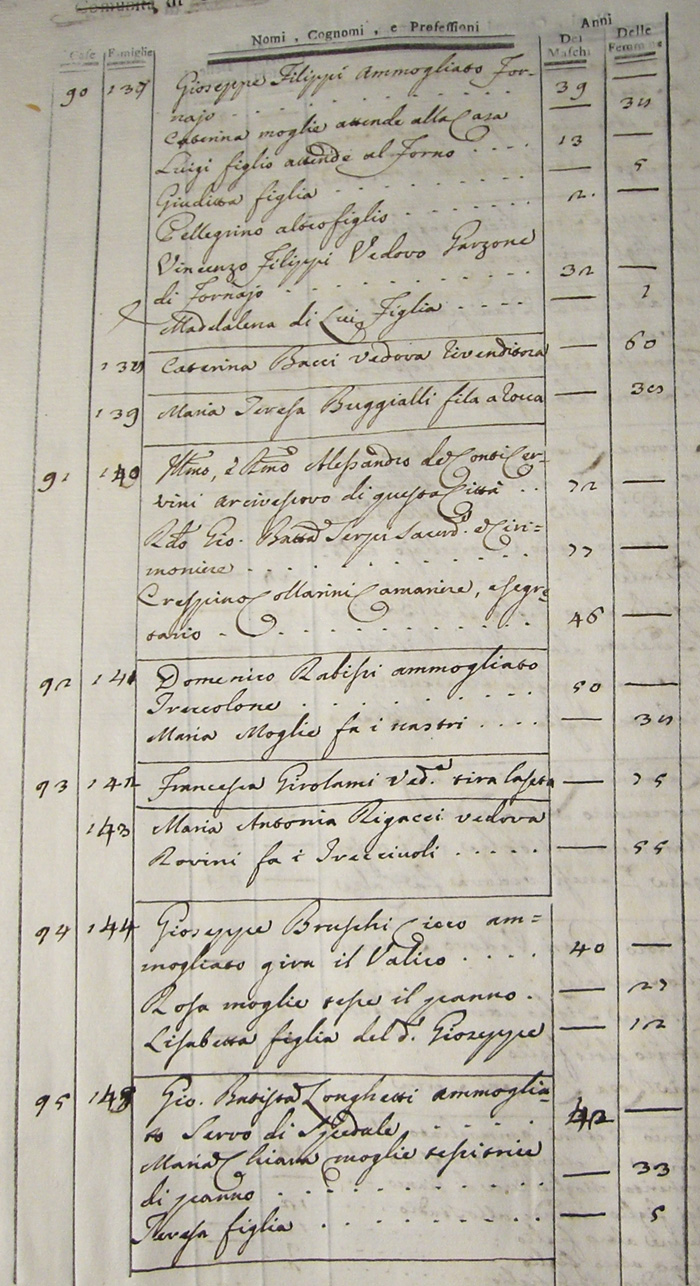 Comunità, di
Case Famiglie Nomi, Cognomi, e Professioni Anni Dei Maschi Delle Femmine
90 137 Gioseppe Filippi Ammogliato For-
najo . . . . . 39 —
Caterina moglie attende alla Casa — 
Luigi figlio attende al Forno . . . . 13 —
Giuditta figlia . . . . . — 5
Pellegrino altro figlio . . . . . 2. —
Vincenzo Filippi Vedovo Garzone
di Fornajo . . . . . 32 —
Maddalena di Lui Figlia . . . . — 1
138 Caterina Bacci vedova rivenditora — 60
139 Maria Teresa Buggialli fila a rocca — 
91 140 Illmo, e Rmo Alessandro de Conti Cer-
vini arcivescovo di questa Città . . 72 —
Rdo Gio. Battá Serpi Sacerd. e Ciri=
moniere . . . . . 77 —
Crespino Collarini Camariere, e segre
tario . . . . . 46 —
92 141 Domenico Rabissi ammogliato
Treccolone . . . . . 50 —
Maria Moglie fa i nastri . . . . — 
93 142 Francesca Girolami Ved.a tira la seta — 75
143 Maria Antonia Rigacci vedova
Rovini fa i Trecciuoli . . . . . — 55
94 144 Gioseppe Bruschi Cieco am=
mogliato gira il Valico . . . . 40 —
Rosa moglie tesse il panno . — 27
Lisabetta figlia del d. Gioseppe — 12
95 145 Gio. Batista Longhetti ammoglia=
to Servo di Spedale . . . . . 42 —
Maria Chiara moglie tessitrice
di panno . . . . . — 33
Teresa figlia . . . . . — 5